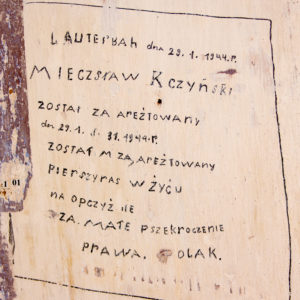 LAUTERBAH dna 29.1.1944.r.
MIECZSŁAW KCZYŃSKI
ZOSTAŁ ZA AREŻTOWANY
dn 29.1. 31.1944.r.
ZOSTAŁ M ZA, AREŻTOWANY
PIERSZYRAS W ŻYĆU
NA OPCZYŻ
ZA. MAŁE PSZEKROCZENIE
PRAWA. POLAK.
01